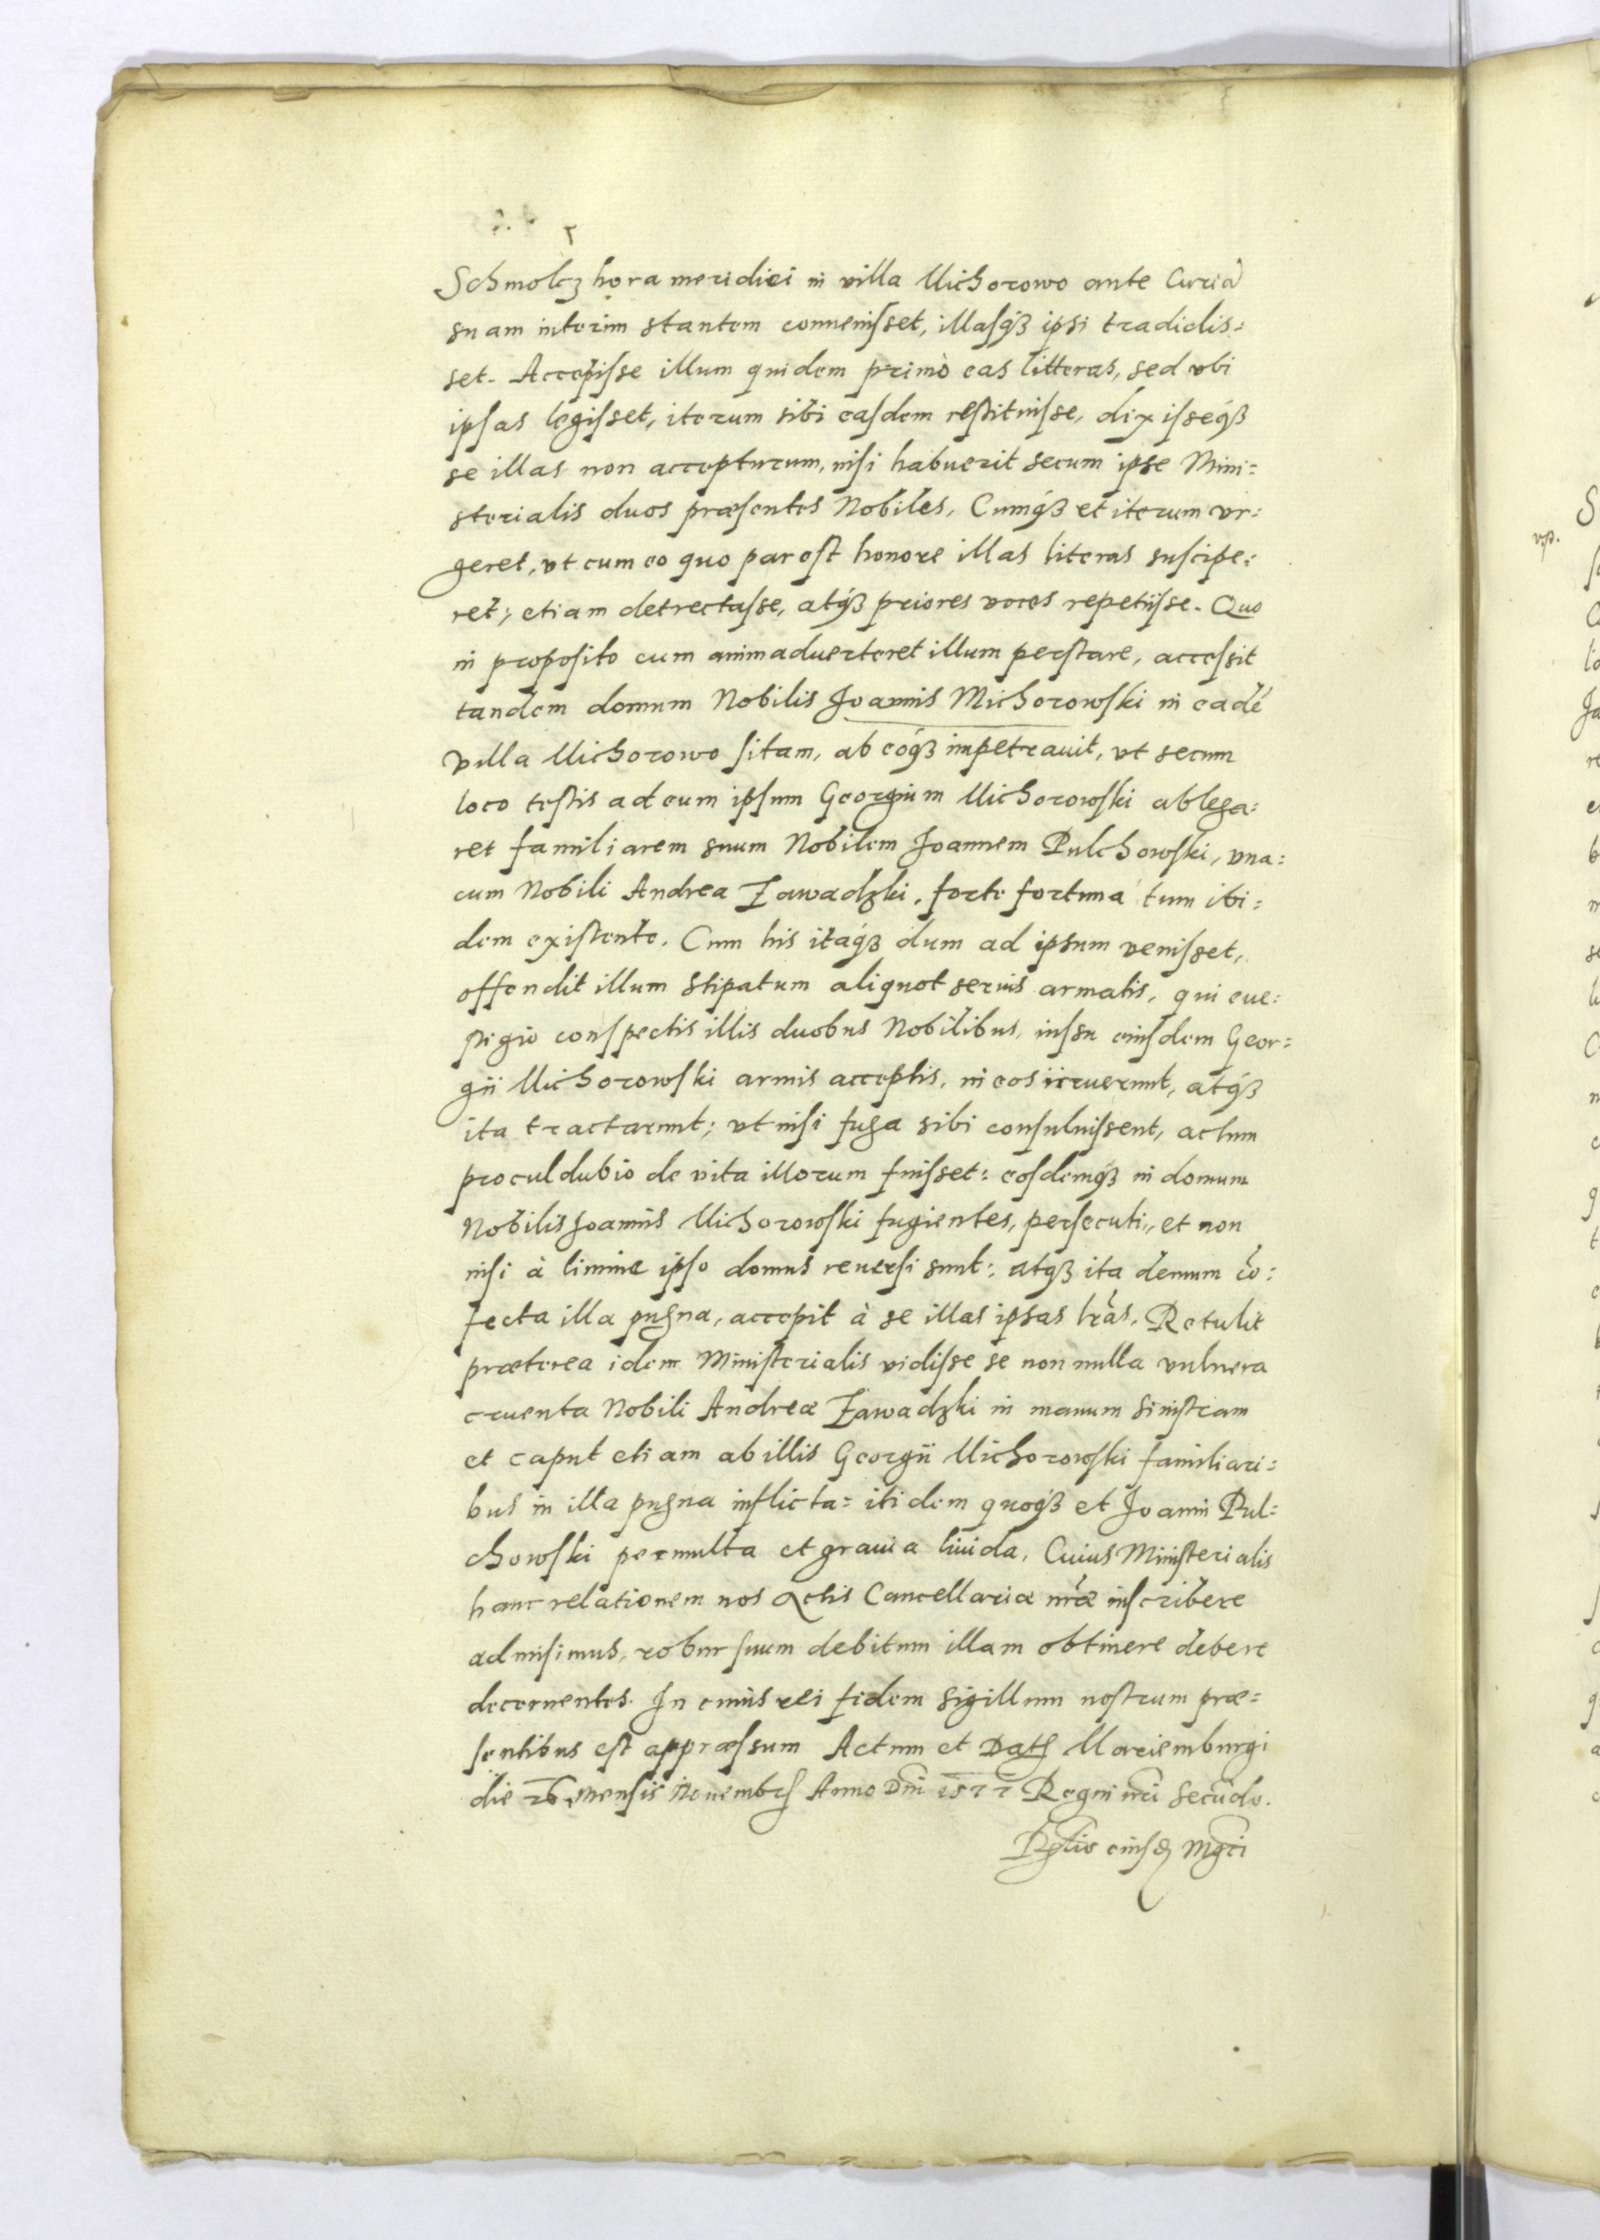 Schmolcz hora meridiei in villa Michorowo ante Curiā
suam interim stantem conuenisset, illasq́ꝫ ipsi tradidis:
set. Accepisse illum quidem primò eas litteras, sed vbi
ipsas legisset, iterum sibi easdem restituisse, dixisseq́ꝫ
se illas non accepturum, nisi habuerit secum ipse Mini:
sterialis duos præsentes Nobiles, Cumq́ꝫ et iterum vr:
geret, vt cum eo quo par est honore illas literas suscipe:
ret; etiam detrectasse, atq́ꝫ priores voces repetijsse. Quo
in proposito cum animaduerteret illum perstare, accessit
tandem domum Nobilis Joannis Michorowski in eadē
villa Michorowo sitam, ab eóq́ꝫ impetrauit, vt secum
loco testis ad eum ipsum Georgium Michorowski ablega:
ret familiarem suum Nobilem Joannem Pulchowski, vna:
cum Nobili Andrea Zawadzki, forte fortuna tum ibi:
dem existente. Cum his itaq́ꝫ dum ad ipsum venisset,
offendit illum stipatum aliquot seruis armatis, qui eue:
stigio conspectis illis duobus Nobilibus, iussu eiusdem Geor:
gii Michorowski armis acceptis, in eos irruerunt, atq́ꝫ
ita tractarunt; vt nisi fuga sibi consuluissent, actum
proculdubio de vita illorum fuisset: eosdemq́ꝫ in domum
Nobilis Joannis Michorowski fugientes, persecuti, et non
nisi à limine ipso domus reuersi sunt: atqꝫ ita demum cō:
fecta illa pugna, accepit à se illas ipsas lr̃as. Retulit
præterea idem Ministerialis vidisse se non nulla vulnera
cruenta Nobili Andreæ Zawadzki in manum sinistram
et caput etiam ab illis Georgii Michorowski familiari:
bus in illa pugna inflicta: itidem quoq́ꝫ et Joanni Pul:
chowski permulta et grauia liuida, Cuius Ministerialis
hanc relationem nos Actis Cancellariæ nr̃æ inscribere
admisimus, robur suum debitum illam obtinere debere
decernentes. In cuius rei fidem sigillum nostrum præ:
sentibus est appræssum Actum et Datꝭ Mariemburgi
die 26 mensis Nouembrꝭ Anno Dn̄i 1577 Regni nr̄i secūdo.
Rl̃tio eiusdꝫ Mgc̄i